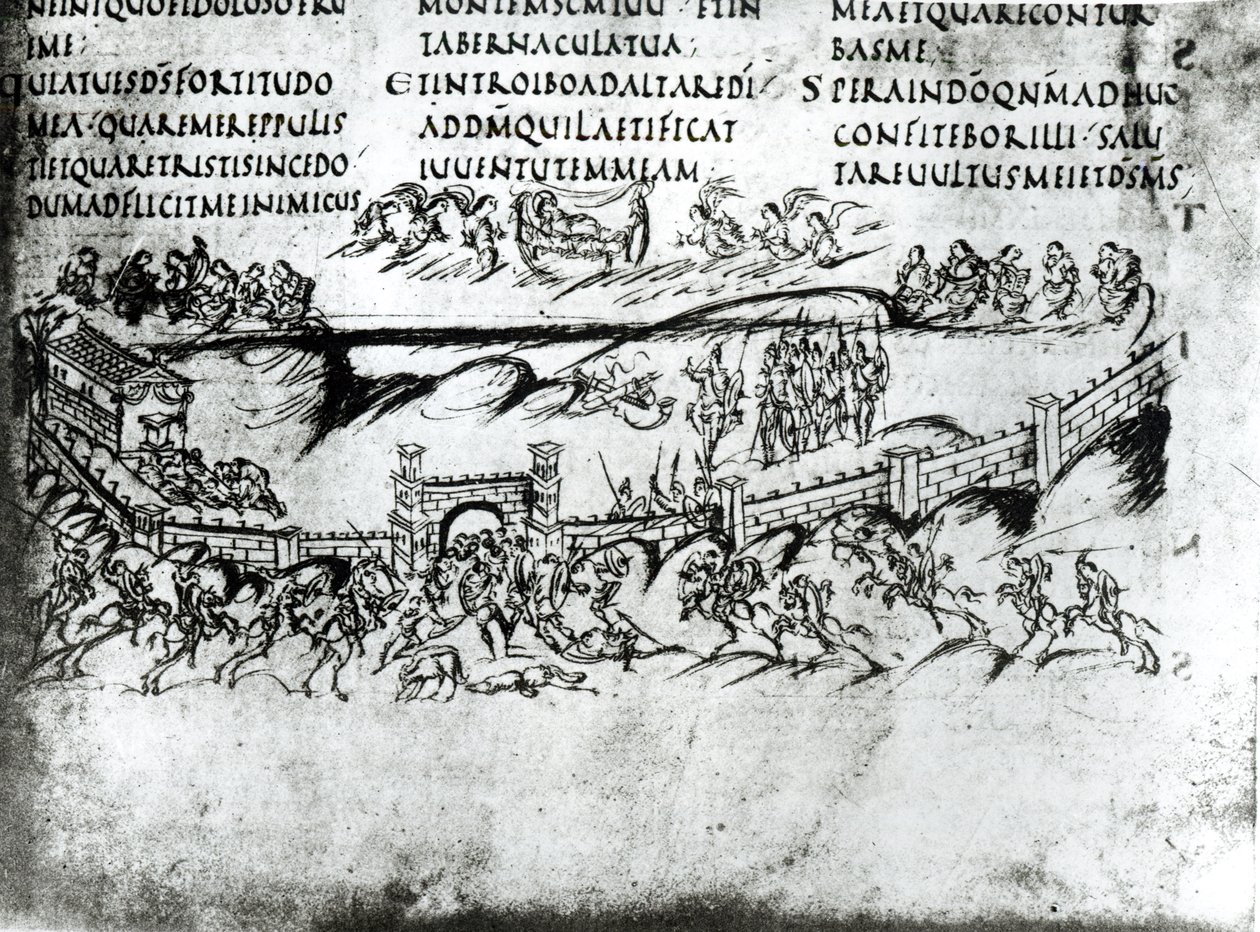 IME;
QUIATUESD̄S̄FORTITUDO
MEA·QUAREMEREPPULIS
TIETQUARETRISTISINCEDO·
DUMADFLIGITMEINIMICUS
MONTEMSCMTUU·ETIN
TABERNACULATUA;
ETINTROIBOADALTAREDĪ·
ADDM̄QUILAETIFICAT
IUUENTUTEMMEAM·
MEAETQUARECONTUR
BASME;
SPERAINDŌQNM̄ADHUC
CONFITEBORILLI·SALU
TAREUULTUSMEIETD̄S̄M̄S;